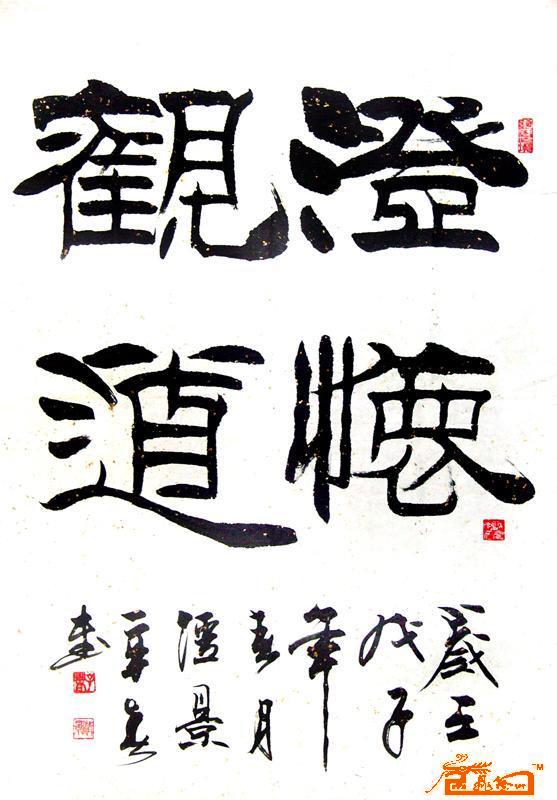 澄懷
觀道
歲在
戊子
年
春月
景
書